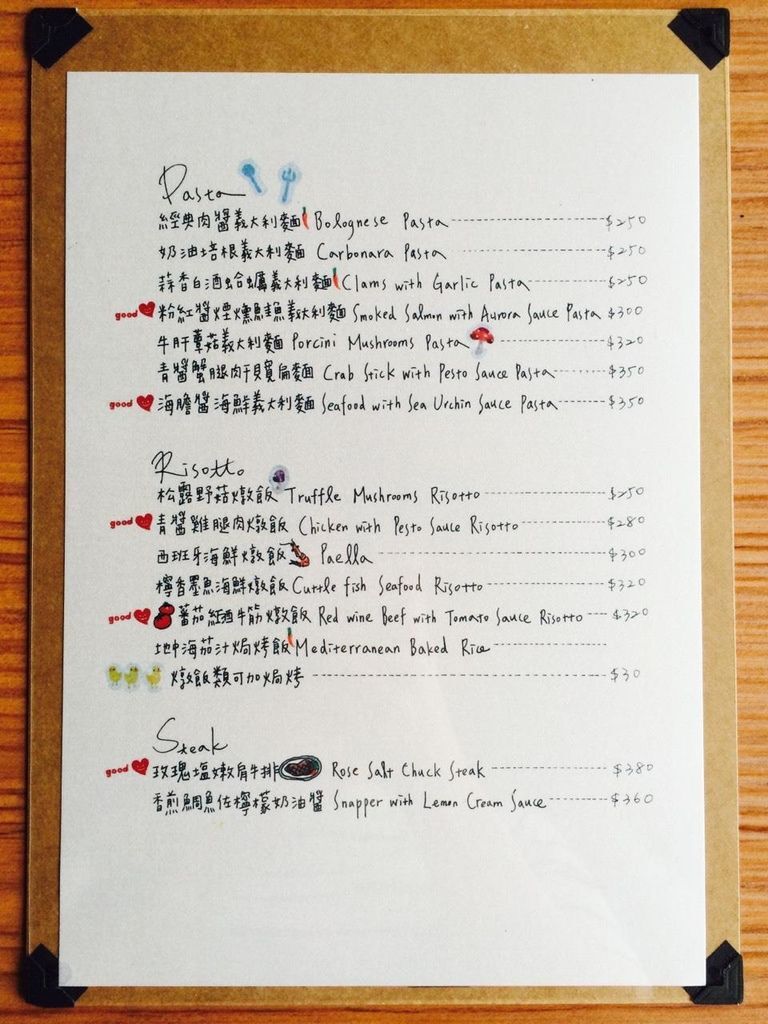 Pasta
經典肉醬義大利麵 Bolognese Pasta $250
奶油培根義大利麵 Carbonara Pasta $250
蒜香白酒蛤蠣義大利麵 Clams with Garlic Pasta $250
good 粉紅醬煙燻鮭魚義大利麵 Smoked Salmon with Aurora Sauce Pasta $300
牛肝蕈菇義大利麵 Porcini Mushrooms Pasta $320
青醬蟹腿肉干貝寬扁麵 Crab Stick with Pesto Sauce Pasta $350
good 海膽醬海鮮義大利麵 Seafood with Sea Urchin Sauce Pasta $350
Risotto
松露野菇燉飯 Truffle Mushrooms Risotto $250
good 青醬雞腿肉燉飯 Chicken with Pesto Sauce Risotto $280
西班牙海鮮燉飯 Paella $300
檸香墨魚海鮮燉飯 Cuttle fish Seafood Risotto $320
good 蕃茄紅酒牛筋燉飯 Red wine Beef with Tomato Sauce Risotto $320
地中海茄汁焗烤飯 Mediterranean Baked Rice
燉飯類可加焗烤 $30
Steak
good 玫瑰塩嫩肩牛排 Rose Salt Chuck Steak $380
香煎鯛魚佐檸檬奶油醬 Snapper with Lemon Cream Sauce $360